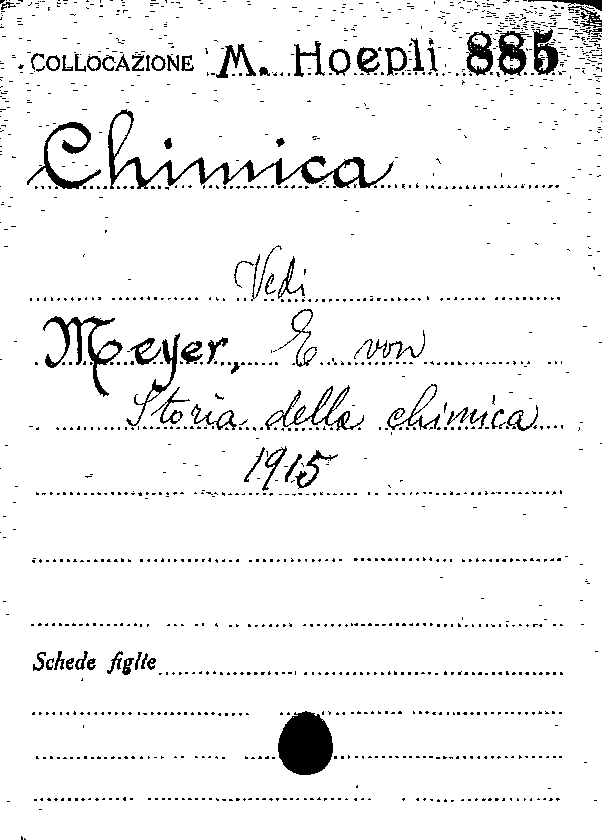 COLLOCAZIONE M. Hoepli 885
Chimica
Vedi
Meyer, E. von
Storia della chimica
1915
Schede figlie